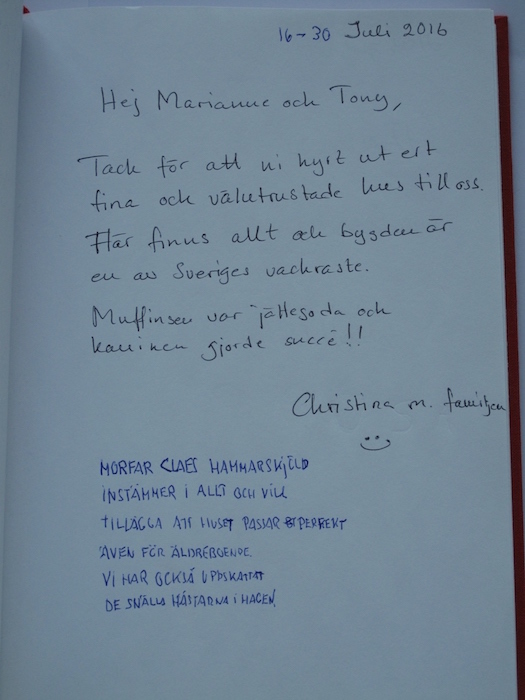 16-30 Juli 2016
Hej Marianne och Tony,
Tack för att ni hyrt ut ert
fina och välutrustade hus till oss.
Här finns allt och bygden är
en av Sveriges vackraste.
Muffinsen var jättegoda och
kaninen gjorde succé!!
Christina m. familjen
MORFAR CLAES HAMMARSKJÖLD
INSTÄMMER I ALLT OCH VILL
TILLÄGGA ATT HUSET PASSAR PERFEKT
ÄVEN FÖR ÄLDREBOENDE.
VI HAR OCKSÅ UPPSKATTAT
DE SNÄLLA HÄSTARNA I HAGEN.